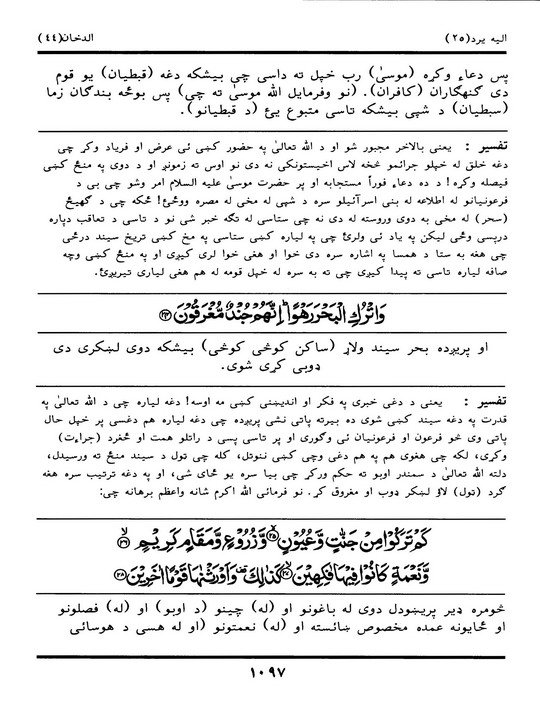 اليه يرد(٢٥) الدخان(٤٤)
پس دعاء وکړه (موسیٰ) رب خپل ته داسی چی بیشکه دغه (قبطیان) یو قوم
دی گنهگاران (کافران). (نو وفرمایل الله موسیٰ ته چی) پس بوځه بندگان زما
(سبطیان) د شپی بیشکه تاسی متبوع یئ (د قبطیانو).
تفسیر : یعنی بالاخر مجبور شو او د الله تعالیٰ په حضور کښی ئی عرض او فریاد وکړ چی
دغه خلق له خپلو جرائمو څخه لاس اخیستونکی نه دی نو اوس ته زمونږ او د دوی په منځ کښی
فیصله وکړه! د ده دعاء فوراً مستجابه او پر حضرت موسیٰ علیه السلام امر وشو چی بی د
فرعونیانو له اطلاعه له بنی اسرآئیلو سره د شپی له مخی له مصره ووځئ! ځکه چی د گهیځ
(سحر) له مخی به دوی وروسته له دی نه چی ستاسی له تگه خبر شی نو د تاسی د تعاقب دپاره
درپسی وځی لیکن په یاد ئی ولرئ چی په لیاره کښی ستاسی په مخ کښی تریخ سیند درځی
چی هغه به ستا د همسا په اشاره سره دی خوا او هغی خوا لری کیږی او په منځ کښی وچه
صافه لیاره تاسی ته پیدا کیږی چی ته به سره له خپل قومه له هم هغی لیاری تیریږئ.
وَاتْرُكِ الْبَحْرَ رَهْوًا ۖ إِنَّهُمْ جُنْدٌ مُّغْرَقُونَ ﴿٢٤﴾
او پریږده بحر سیند ولاړ (ساکن کوڅی کوڅی) بیشکه دوی لښکری دی
ډوبی کړی شوی.
تفسیر : یعنی د دغی خبری په فکر او اندیښنی کښی مه اوسه! دغه لیاره چی د الله تعالیٰ په
قدرت په دغه سیند کښی شوی ده بیرته پاتی نشی پریږده چی دغه لیاره هم دغسی پر خپل حال
پاتی وی څو فرعون او فرعونیان ئی وگوری او پر تاسی پسی د راتلو همت او څغرد (جراءت)
وکړی، لکه چی هغوی هم په هم دغی وچی کښی ننوتل، کله چی تول د سیند منځ ته ورسیدل،
دلته الله تعالیٰ د سمندر اوبو ته حکم ورکړ چی بیا سره یو ځای شی، او په دغه ترتیب سره هغه
گرد (تول) لاؤ لښکر ډوب او مغروق کړ. نو فرمائی الله اکرم شانه واعظم برهانه چی:
كَمْ تَرَكُوا مِنْ جَنّٰتٍ وَّعُيُونٍ ﴿٢٥﴾ وَّزُرُوعٍ وَّمَقَامٍ كَرِيْمٍ ﴿٢٦﴾
وَّنَعْمَةٍ كَانُوا فِيْهَا فٰكِهِيْنَ ﴿٢٧﴾ كَذٰلِكَ ۚ وَاَوْرَثْنٰهَا قَوْمًا اٰخَرِيْنَ ﴿٢٨﴾
څومره ډیر پریښودل دوی له باغونو او (له) چینو (د اوبو) او (له) فصلونو
او ځایونه عمده مخصوص ښائسته او (له) نعمتونو (او له هسی د هوسائی
١٠٩٧